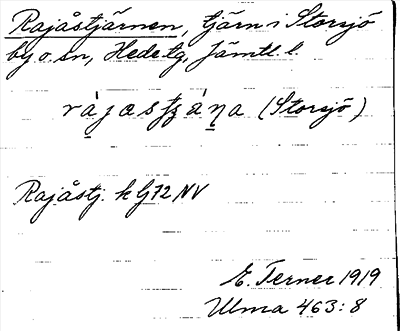 Rajåstjärnen, tjärn i Storsjö
by o. sn, Hede tg, Jämtl. l.
(Storsjö)
Rajåstj. k G72 NV
E. Terner 1919
Ulma 463:8